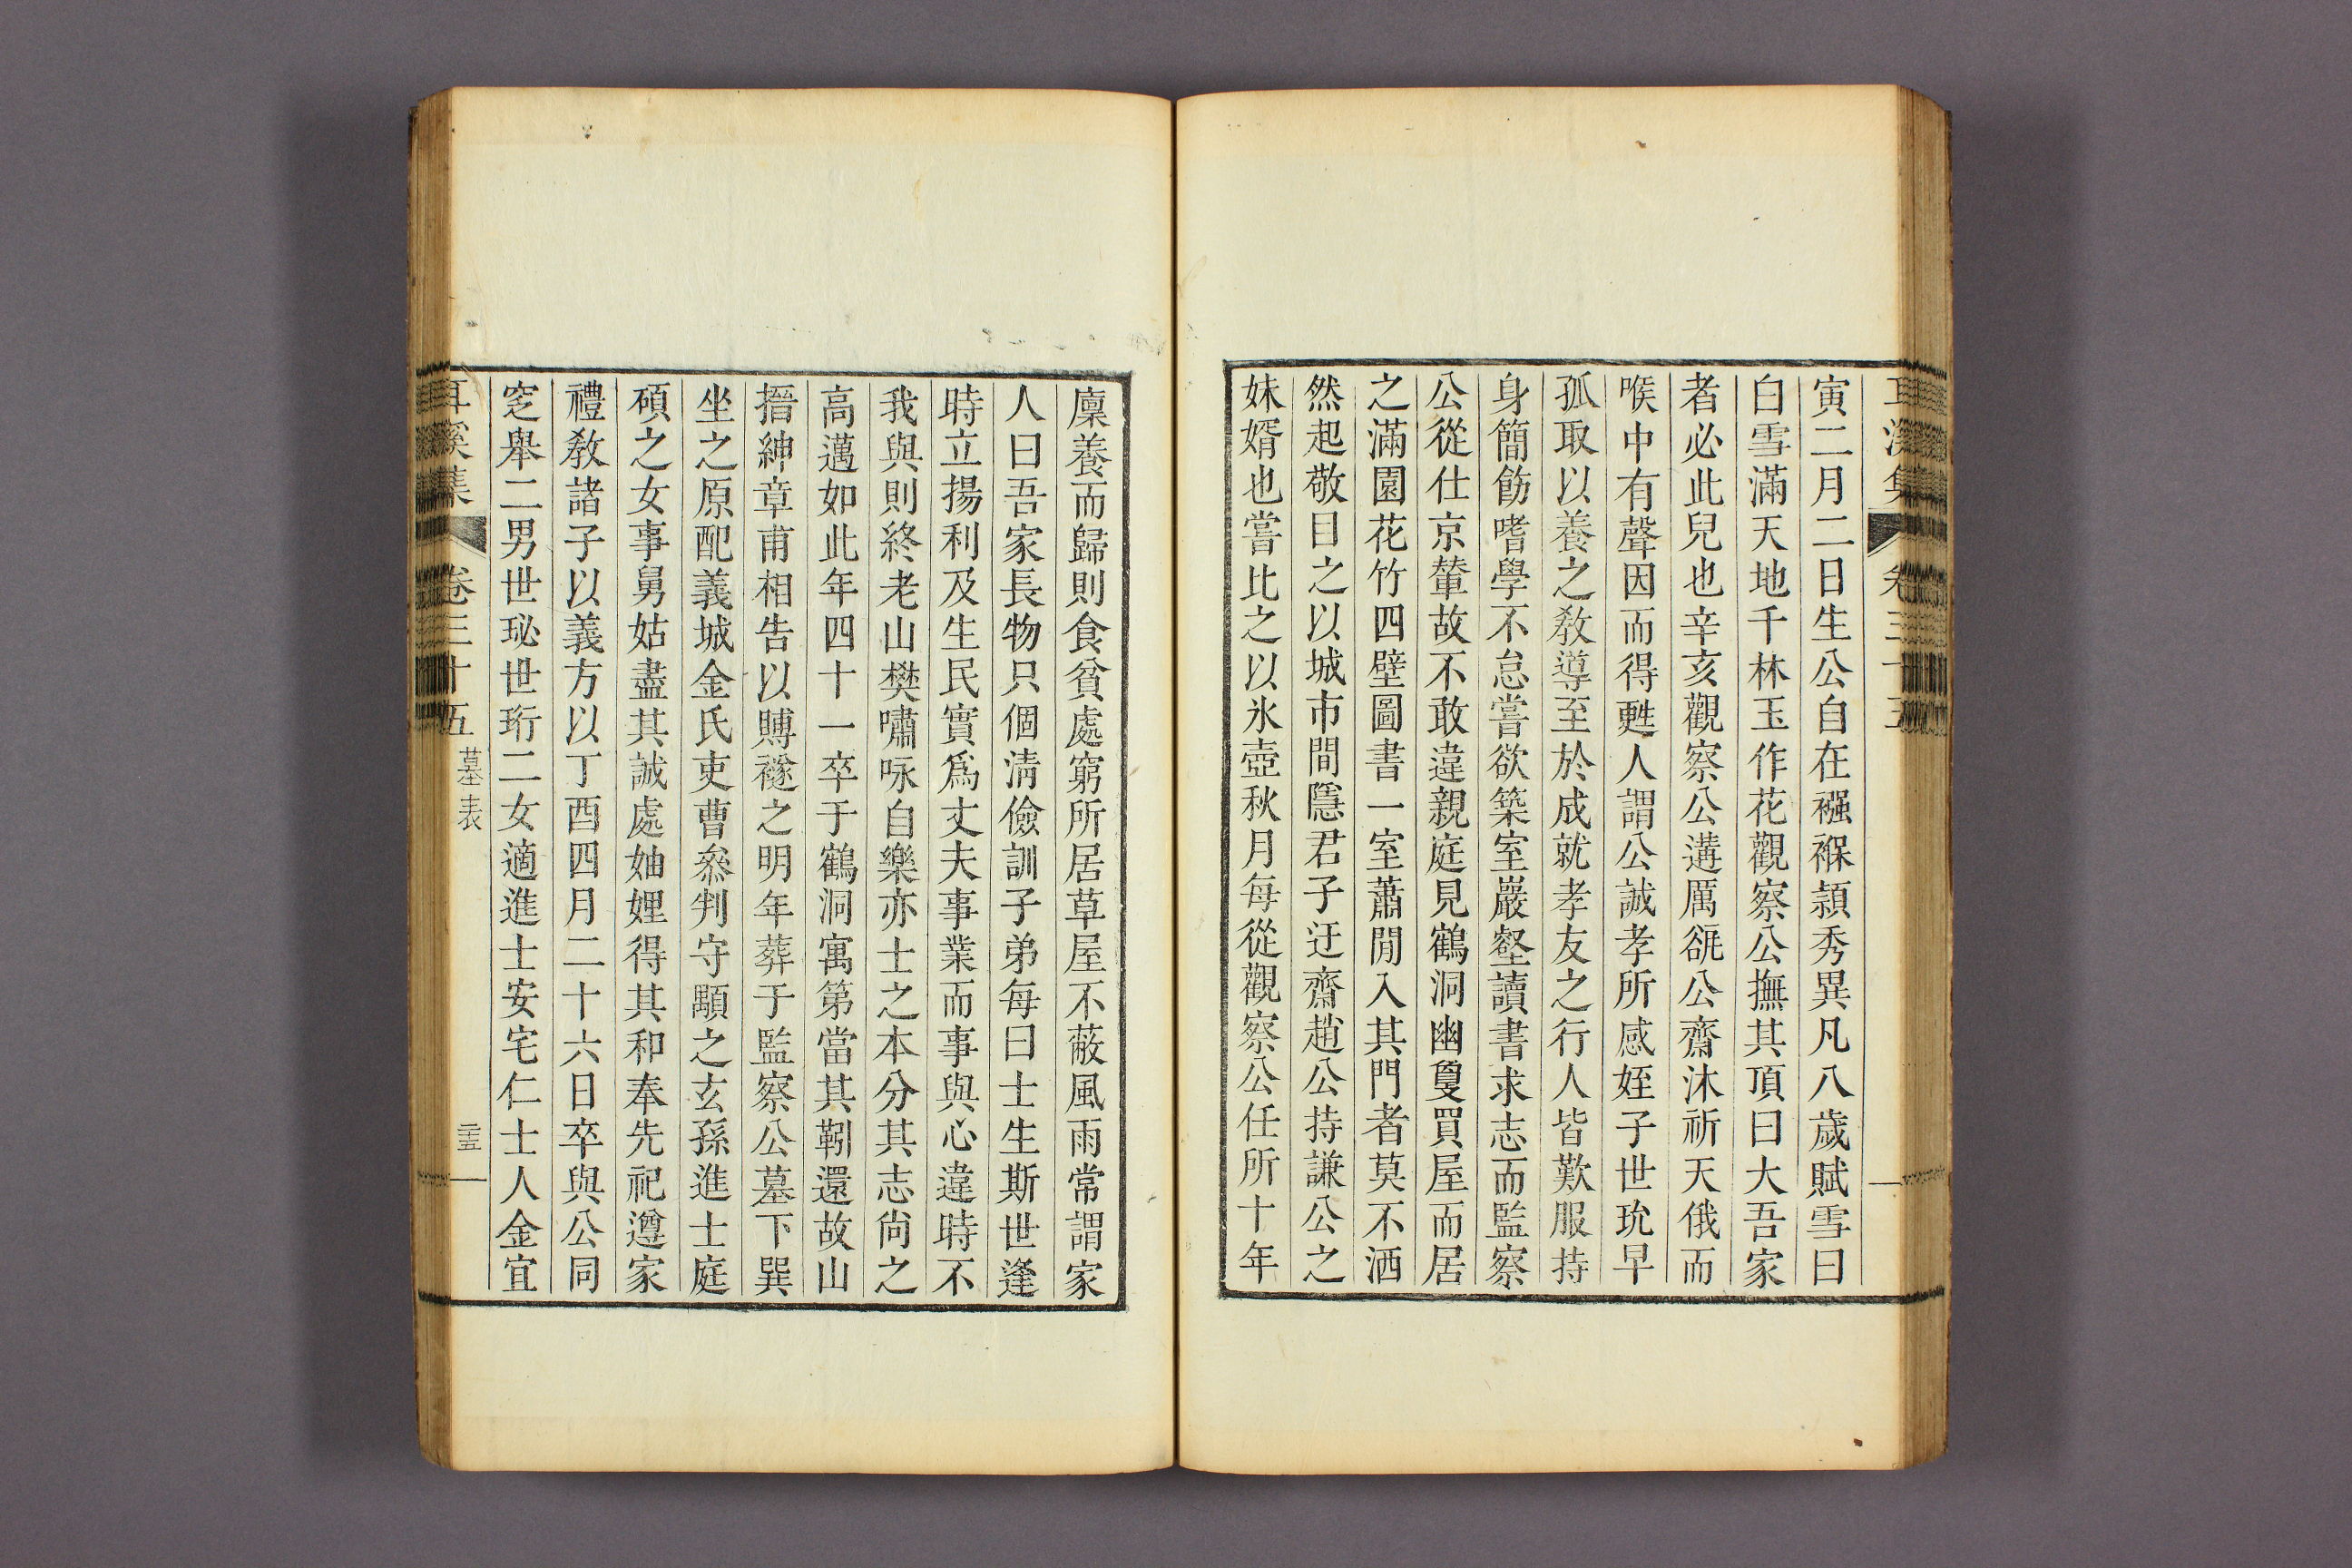 寅二月二日生公自在襁褓頴秀異凡八歲賦雪曰
白雪滿天地千林玉作花觀察公撫其頂曰大吾家
者必此兒也辛亥觀察公遘厲谻公齋沐祈天俄而
喉中有聲因而得甦人謂公誠孝所感姪子世玧早
孤取以養之敎導至於成就孝友之行人皆歎服持
身簡飭嗜學不怠嘗欲築室巖壑讀書求志而監察
公從仕京輦故不敢違親庭見鶴洞幽敻買屋而居
之滿園花竹四壁圖書一室蕭閒入其門者莫不洒
然起敬目之以城市間隱君子迂齋趙公持謙公之
妹婿也嘗比之以氷壺秋月每從觀察公任所十年
廩養而歸則食貧處窮所居草屋不蔽風雨常謂家
人曰吾家長物只個淸儉訓子弟每曰士生斯世逢
時立揚利及生民實爲丈夫事業而事與心違時不
我與則終老山樊嘯咏自樂亦士之本分其志尙之
高邁如此年四十一卒于鶴洞寓第當其靷還故山
搢紳章甫相告以賻襚之明年葬于監察公墓下巽
坐之原配義城金氏吏曹叅判守顒之玄孫進士庭
碩之女事舅姑盡其誠處妯娌得其和奉先祀遵家
禮敎諸子以義方以丁酉四月二十六日卒與公同
窆舉二男世珌世珩二女適進士安宅仁士人金宜
耳溪集 卷三十五 墓表 二十五